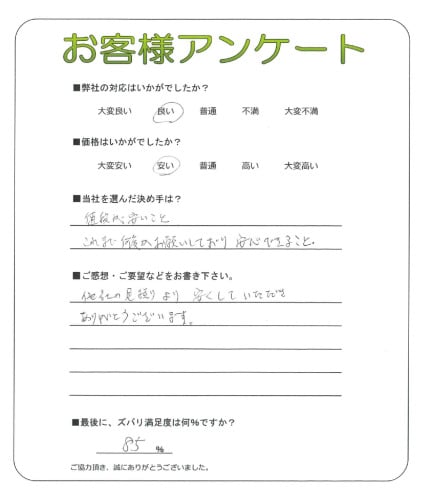 お客様アンケート
■弊社の対応はいかがでしたか？
大変良い 良い 普通 不満 大変不満
■価格はいかがでしたか？
大変安い 安い 普通 高い 大変高い
■当社を選んだ決め手は？
値段が安いこと
これまで何度かお願いしており 安心できること。
■ご感想・ご要望などをお書き下さい。
他社の見積りより 安くしていただき
ありがとうございます。
■最後に、ズバリ満足度は何％ですか？
85 ％
ご協力頂き、誠にありがとうございました。